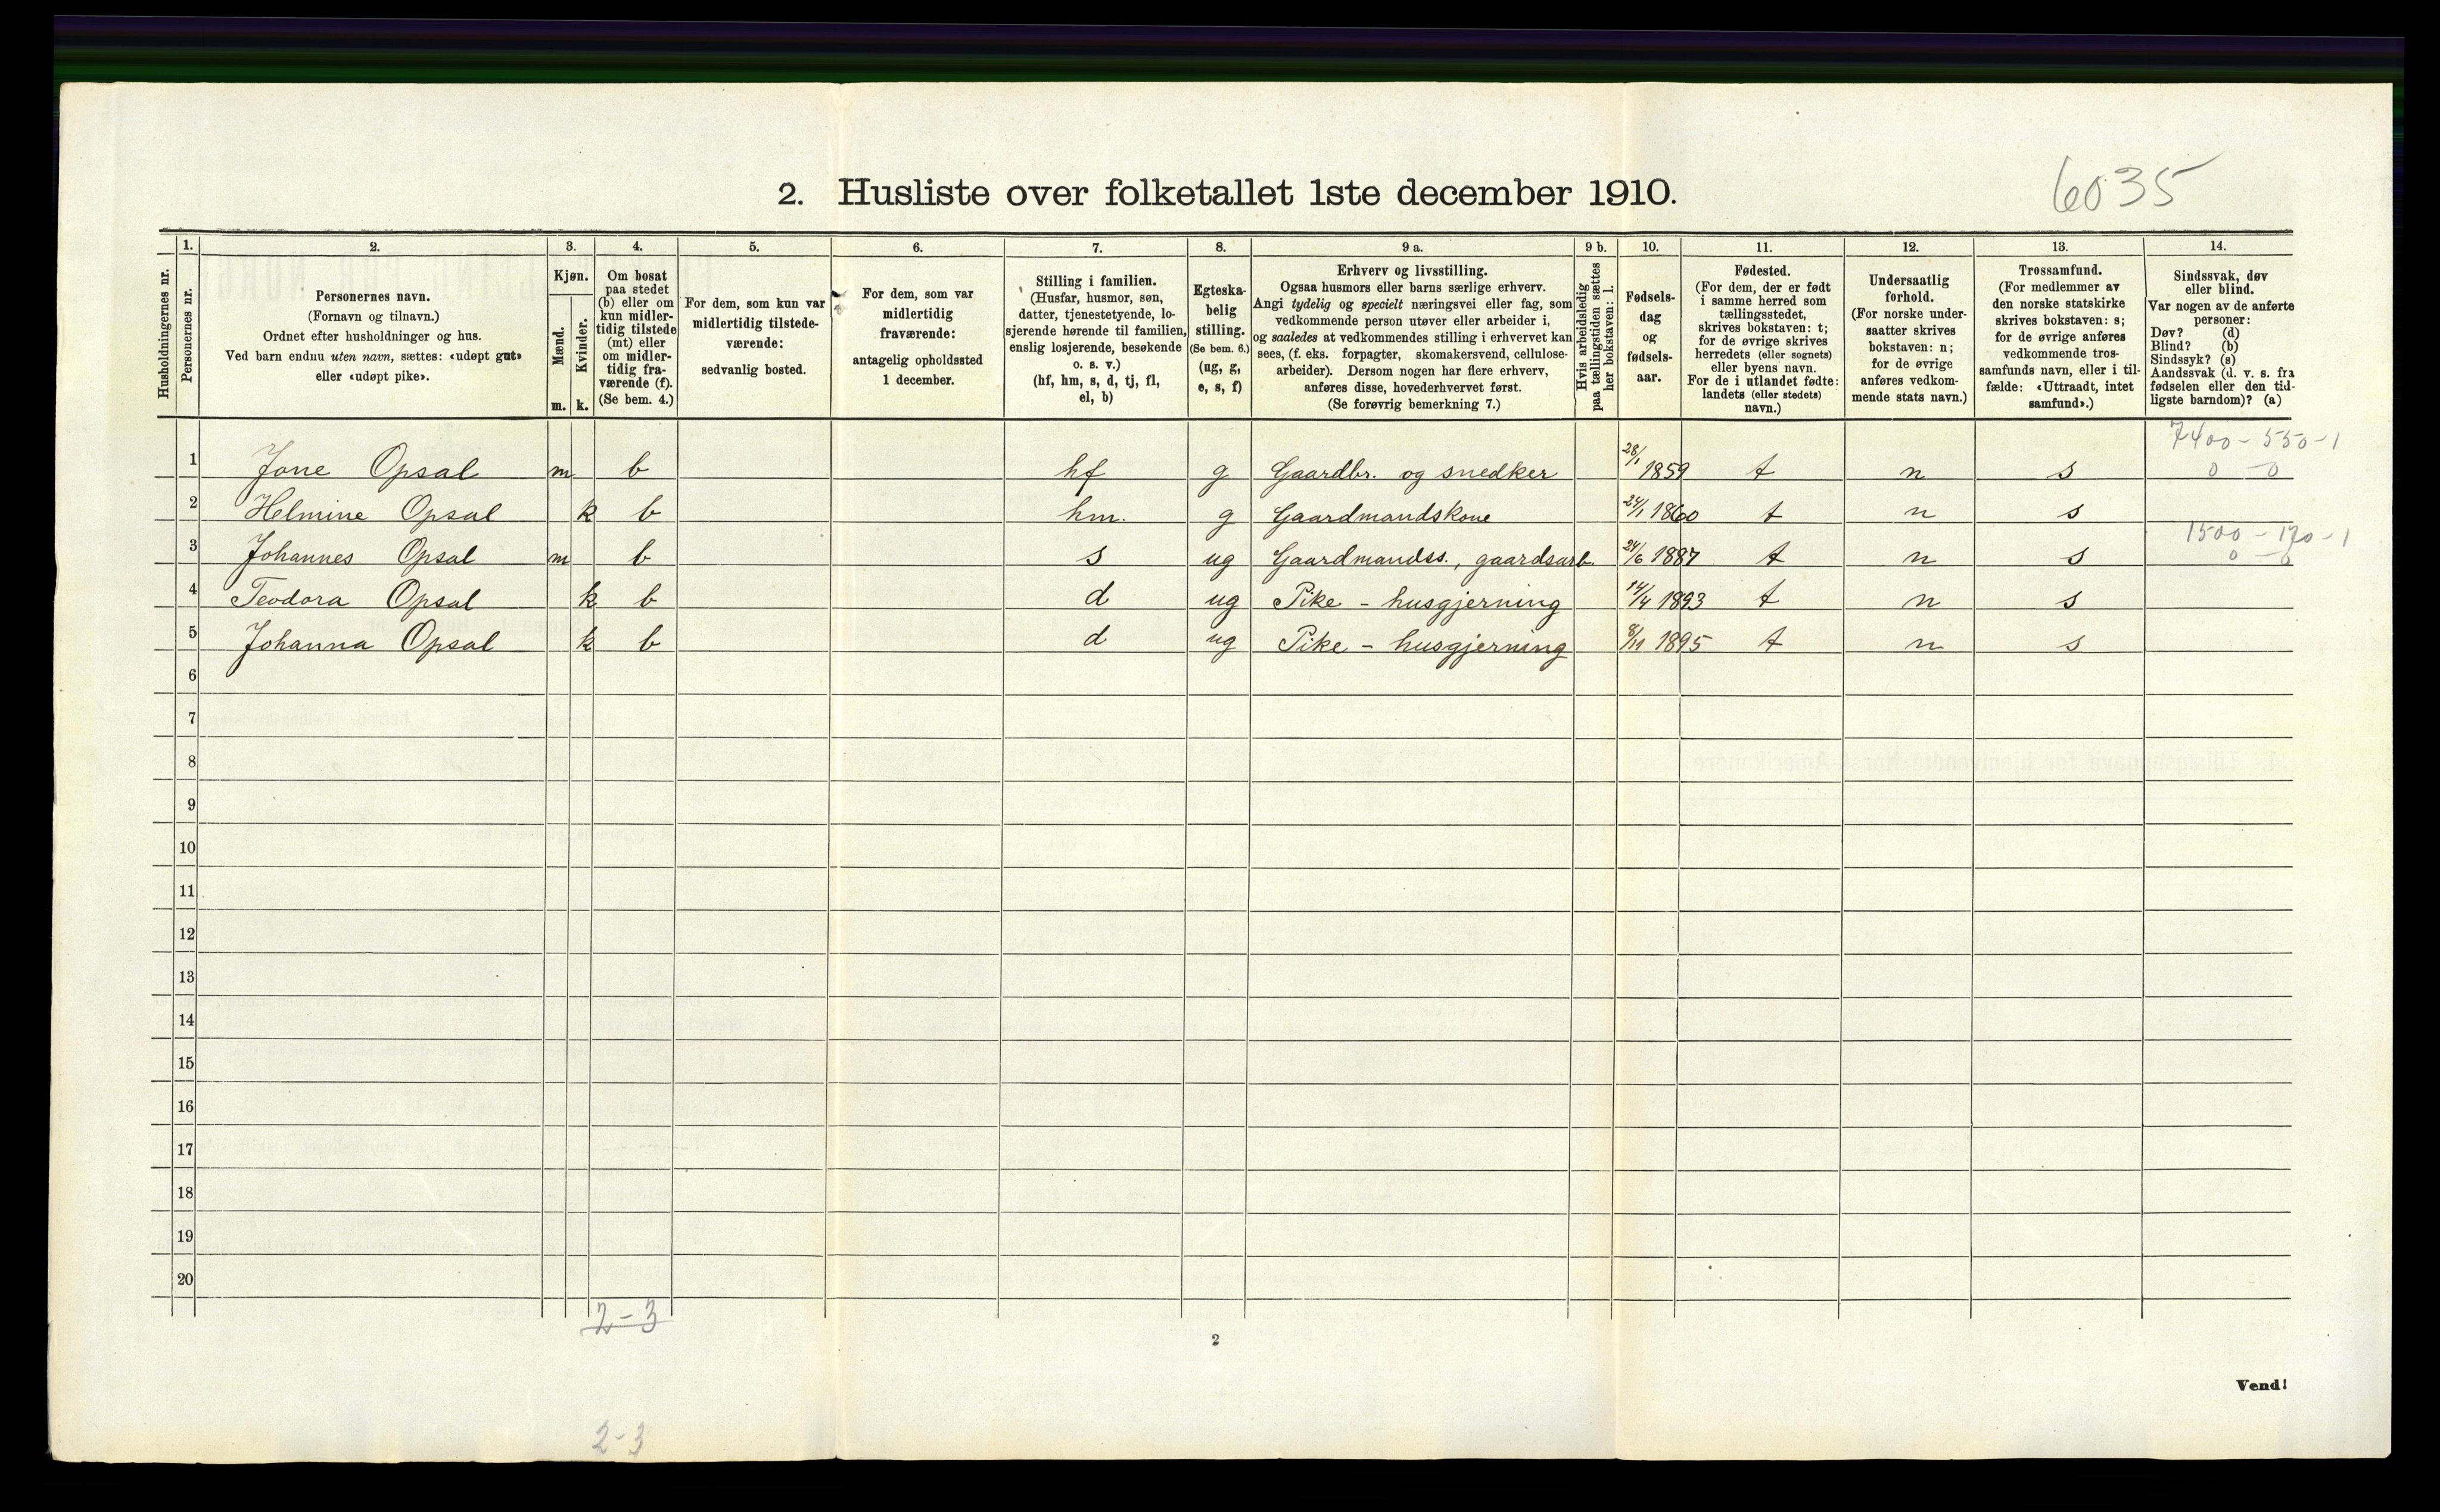 2. Husliste over folketallet 1ste december 1910.
6035
Husholdningernes nr.
1.
Personernes nr.
2.
Personernes navn.
(Fornavn og tilnavn.)
Ordnet efter husholdninger og hus.
Ved barn endnu uten navn, sættes: «udøpt gut»
eller «udøpt pike».
3.
Kjøn.
Mænd.
Kvinder.
m. k.
4.
Om bosat
paa stedet
(b) eller om
kun midler-
tidig tilstede
(mt) eller
om midler-
tidig fra-
værende (f).
(Se bem. 4.)
5.
For dem, som kun var
midlertidig tilstede-
værende:
sedvanlig bosted.
6.
For dem, som var
midlertidig
fraværende:
antagelig opholdssted
1 december.
7.
Stilling i familien.
(Husfar, husmor, søn,
datter, tjenestetyende, lo-
sjerende hørende til familien,
enslig losjerende, besøkende
o. s. v.)
(hf, hm, s, d, tj, fl,
el, b)
8.
Egteska-
belig
stilling.
(Se bem. 6.)
(ug, g,
e, s, f)
9 a.
Erhverv og livsstilling.
Ogsaa husmors eller barns særlige erhverv.
Angi tydelig og specielt næringsvei eller fag, som
vedkommende person utøver eller arbeider i,
og saaledes at vedkommendes stilling i erhvervet kan
sees, (f. eks. forpagter, skomakersvend, cellulose-
arbeider). Dersom nogen har flere erhverv,
anføres disse, hovederhvervet først.
(Se forøvrig bemerkning 7.)
9 b.
Hvis arbeidsledig
paa tællingstiden sættes
her bokstaven: l.
10.
Fødsels-
dag
og
fødsels-
aar.
11.
Fødested.
(For dem, der er født
i samme herred som
tællingsstedet,
skrives bokstaven: t;
for de øvrige skrives
herredets (eller sognets)
eller byens navn.
For de i utlandet fødte:
landets (eller stedets)
navn.)
12.
Undersaatlig
forhold.
(For norske under-
saatter skrives
bokstaven: n;
for de øvrige
anføres vedkom-
mende stats navn.)
13.
Trossamfund.
(For medlemmer av
den norske statskirke
skrives bokstaven: s;
for de øvrige anføres
vedkommende tros-
samfunds navn, eller i til-
fælde: «Uttraadt, intet
samfund».)
14.
Sindssvak, døv
eller blind.
Var nogen av de anførte
personer:
Døv? (d)
Blind? (b)
Sindssyk? (s)
Aandssvak (d. v. s. fra
fødselen eller den tid-
ligste barndom)? (a)
7400 - 550 - 1
1 Jone Opsal m b hf g Gaardbr. og snedker 28/1 1859 t n s 0 - 0
2 Helmine Opsal k b hm. g Gaardmandskone 24/1 1860 t n s
1500 - 170 - 1
3 Johannes Opsal m b s ug Gaardmandss., gaardsarb. 24/6 1887 t n s 0 - 0
4 Teodora Opsal k b d ug Pike - husgjerning 14/4 1893 t n s
5 Johanna Opsal k b d ug Pike - husgjerning 8/11 1895 t n s
6
7
8
9
10
11
12
13
14
15
16
17
18
19
20
2-3
2
Vend!
2-3